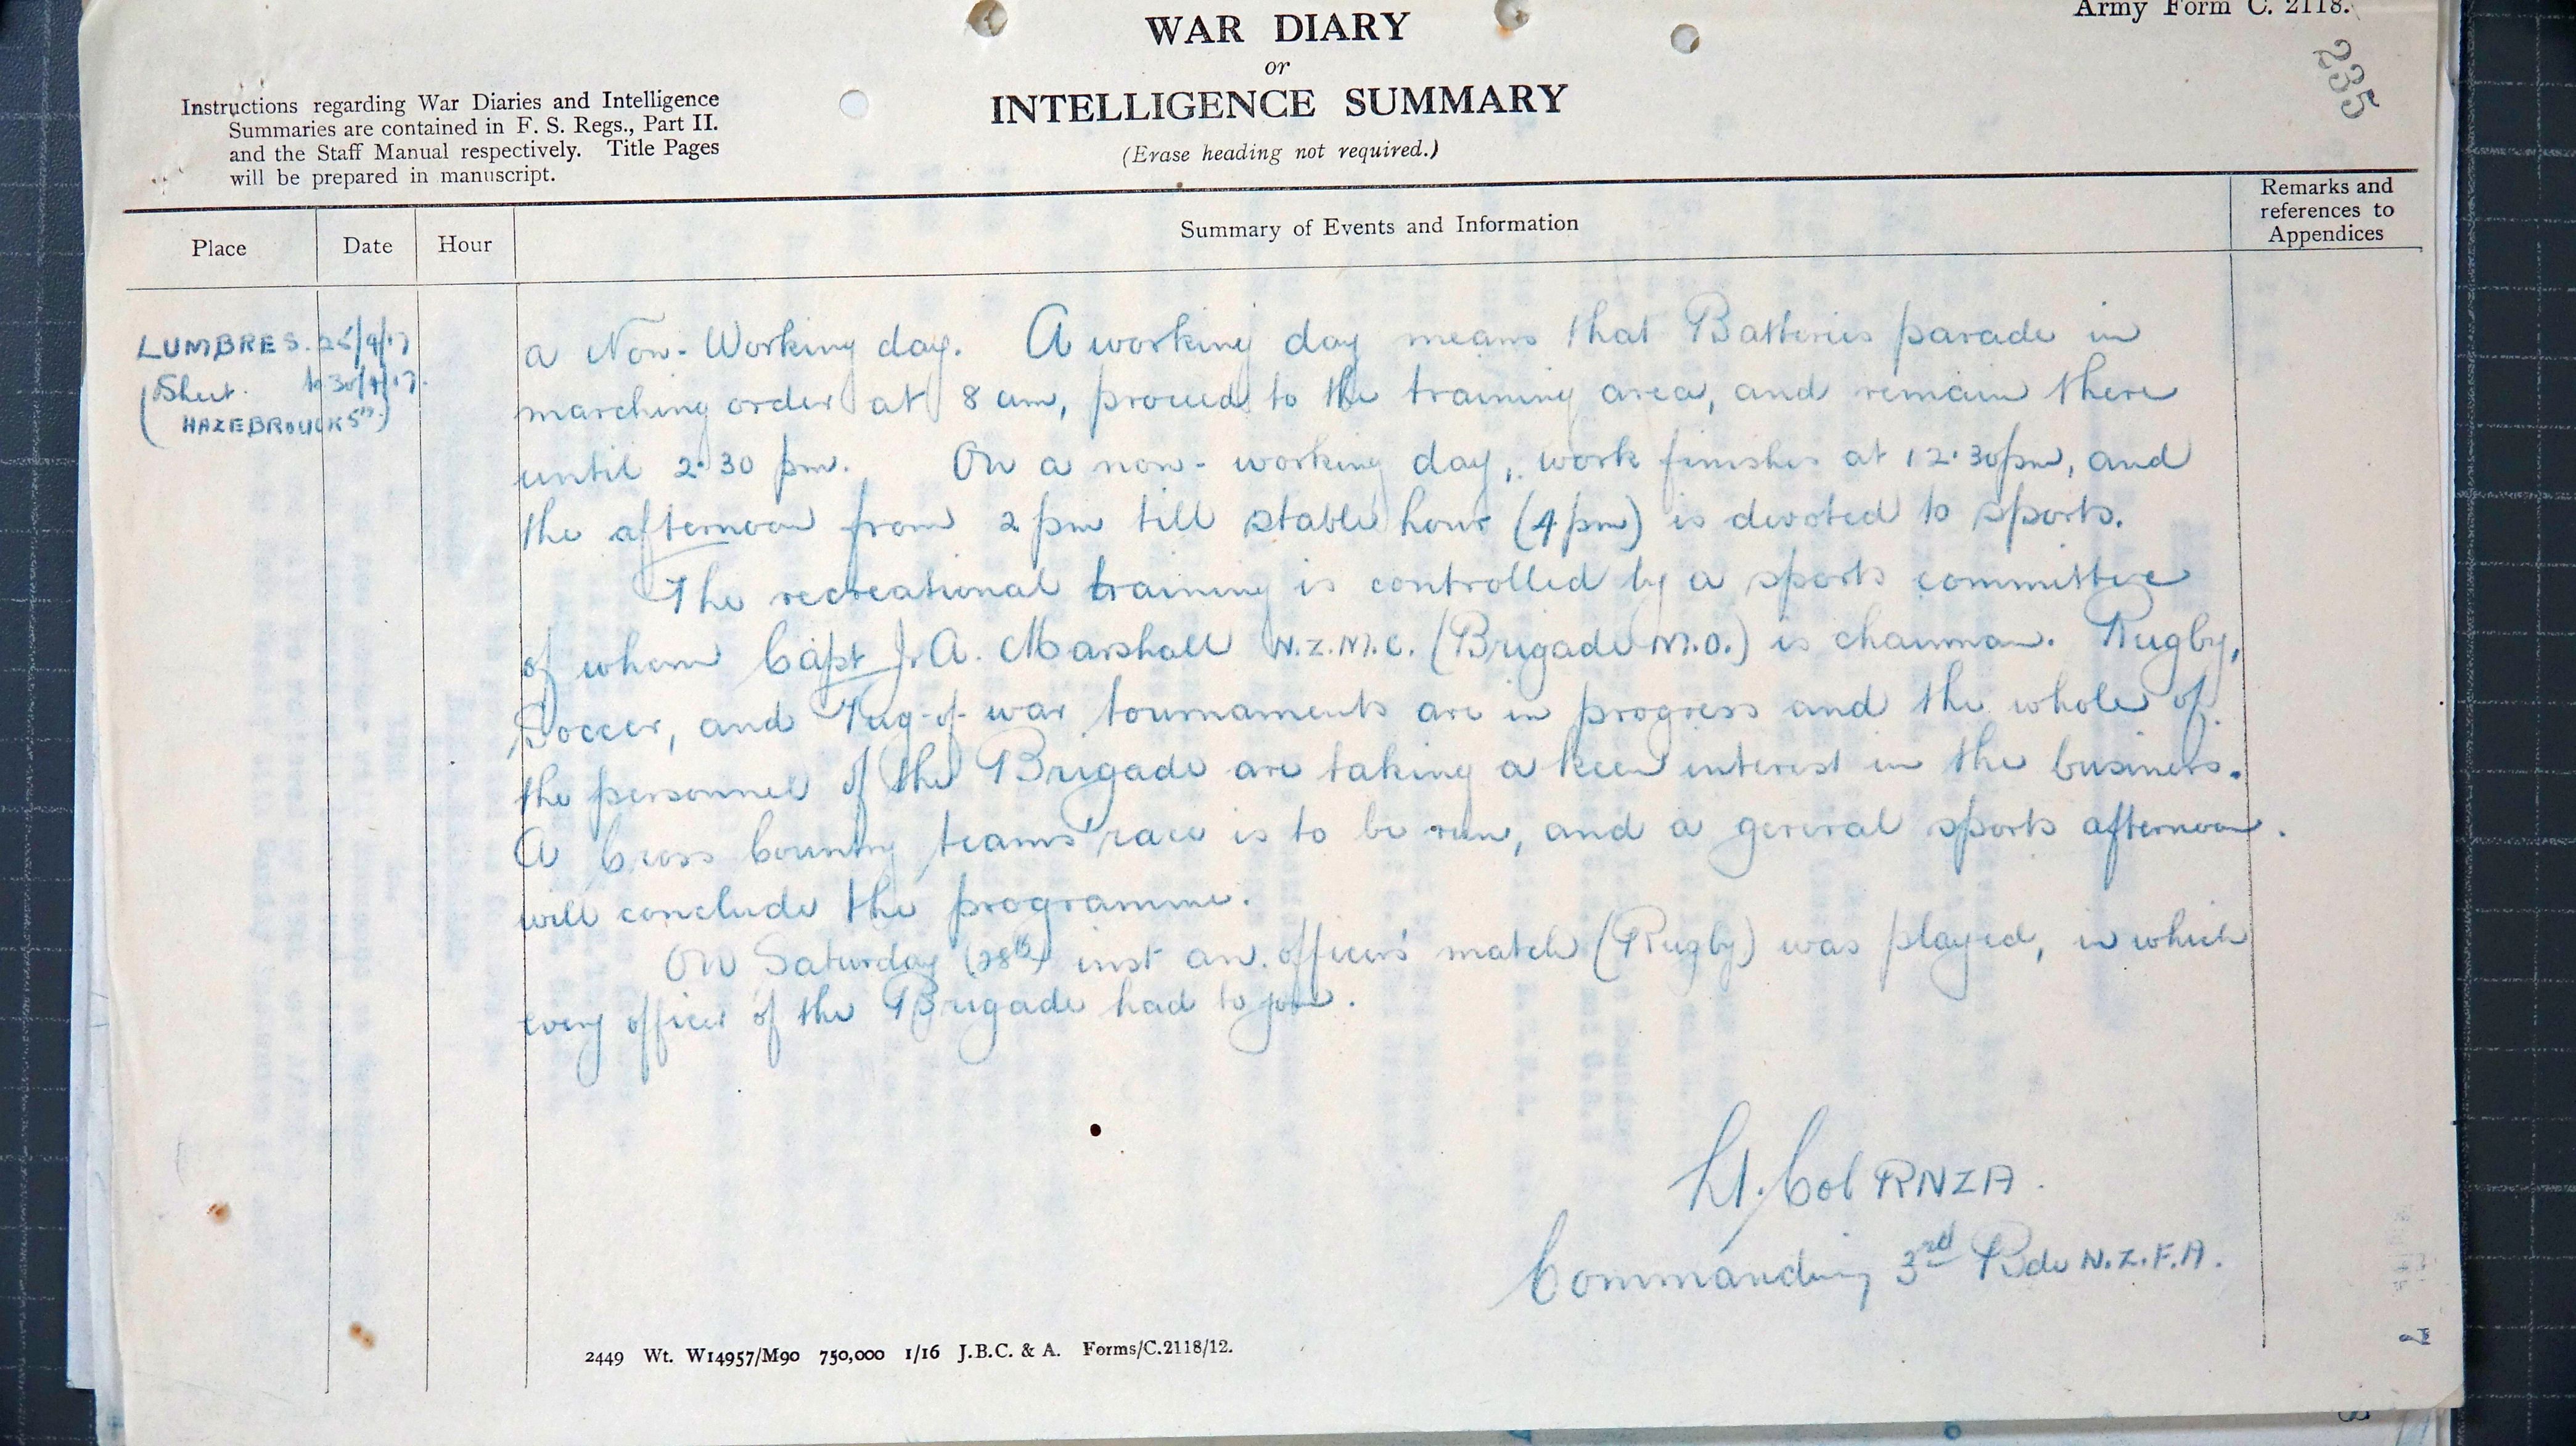 Army Form C. 2118.
235
WAR DIARY
or
INTELLIGENCE SUMMARY
(Erase heading not required.)
Instructions regarding War Diaries and Intelligence
Summaries are contained in F. S. Regs., Part II.
and the Staff Manual respectively. Title Pages
will be prepared in manuscript.
Place
Date
Hour
Summary of Events and Information
Remarks and
references to
Appendices
LUMBRES. 25/9/17
(Sheet. to 30/9/17.
HAZEBROUCK 5A)
a Non-Working day. A working day means that Batteries parade in
marching order at 8 am, proceed to the training area, and remain there
until 2.30 pm. On a non-working day, work finishes at 12.30pm, and
the afternoon from 2 pm till stable hour (4 pm) is devoted to sports.
The recreational training is controlled by a sports committee
of whom Capt J.A. Marshall N.Z.M.C. (Brigade M.O.) is chairman. Rugby,
Soccer, and Tug-of-war tournaments are in progress and the whole of
the personnel of the Brigade are taking a keen interest in the business.
A Cross Country teams' race is to be run, and a general sports afternoon.
will conclude the programme.
On Saturday (28th) inst an officers' match (Rugby) was played, in which
every officer of the Brigade had to join.
Lt. Col RNZA.
Commanding 3rd Bde N.Z.F.A.
2449 Wt. W14957/M90 750,000 1/16 J.B.C. & A. Forms/C.2118/12.